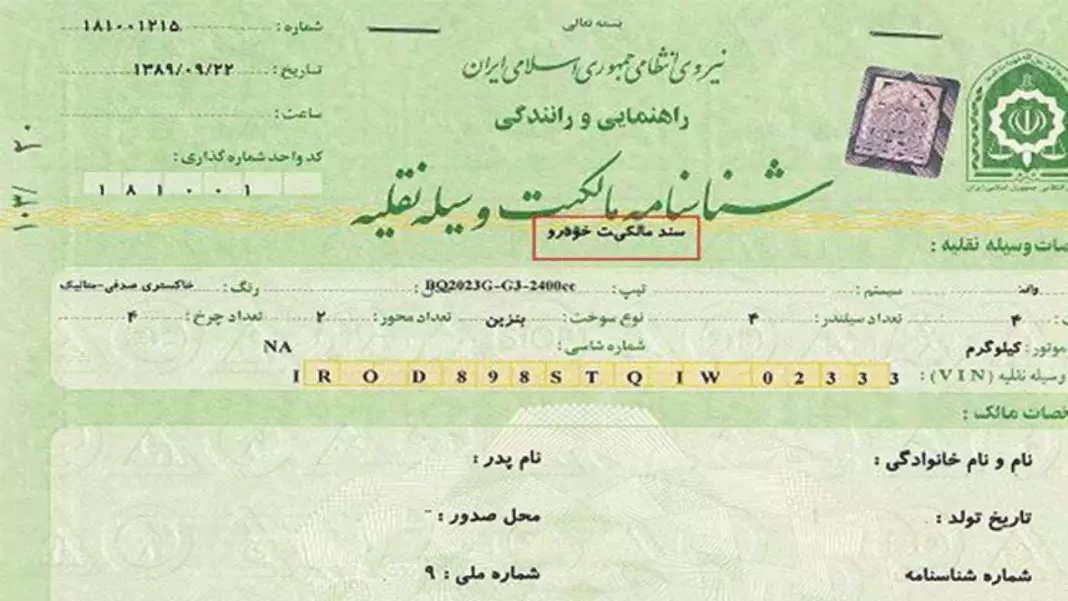 بسمه تعالی
نیروی انتظامی جمهوری اسلامی ایران
راهنمایی و رانندگی
شناسنامه مالکیت وسیله نقلیه
سند مالکیت خودرو
شماره : ۱۸۱۰۰۱۲۱۵
تاریخ : ۱۳۸۹/۰۹/۲۲
ساعت :
کد واحد شماره گذاری :
۱۸۱۰۰۱
۱۰۳/ ۲۰
صات وسیله نقلیه :
وانت سیستم : تیپ : BQ2023G-G3-2400cc رنگ : خاکستری صدفی-متالیک
۴ تعداد سیلندر : ۴ نوع سوخت : بنزین تعداد محور : ۲ تعداد چرخ : ۴
موتور : کیلوگرم شماره شاسی : NA
وسیله نقلیه (VIN) : IROD898STQIW02333
خصات مالک :
نام و نام خانوادگی : نام پدر :
تاریخ تولد : محل صدور :
شماره شناسنامه شماره ملی : ۹